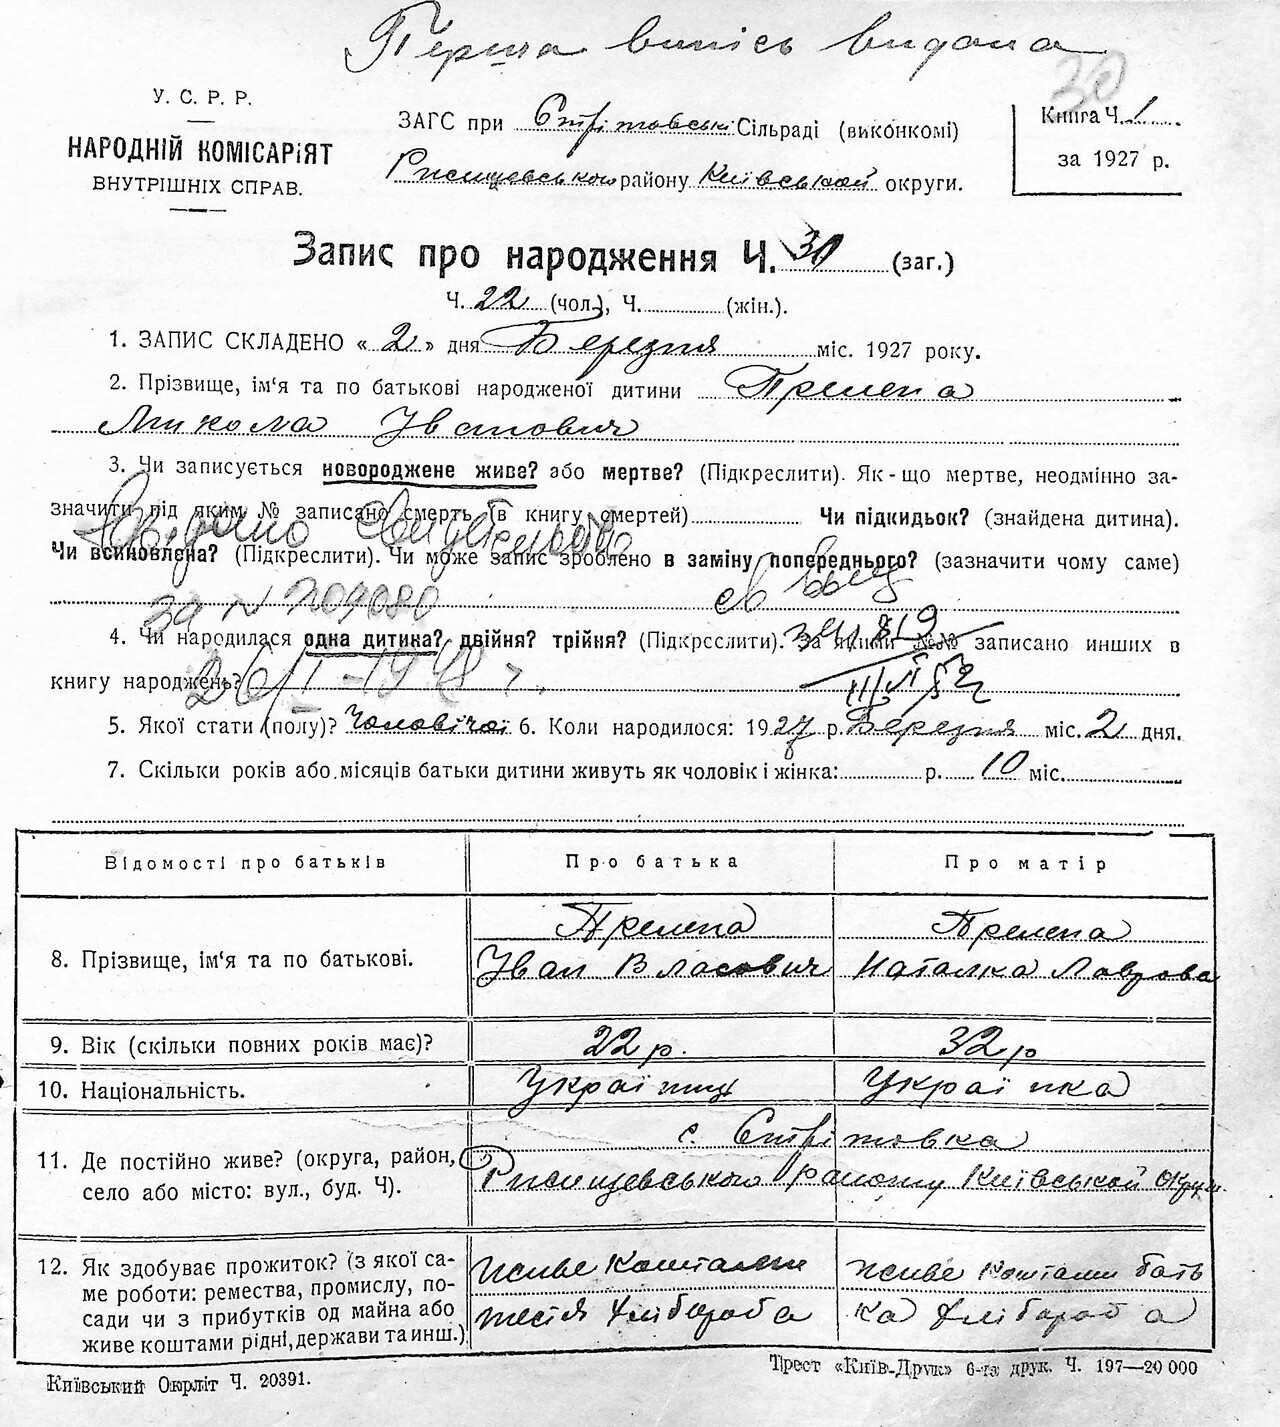 Перша випись видана
30
У. С. Р. Р.
НАРОДНІЙ КОМІСАРІЯТ
ВНУТРІШНІХ СПРАВ.
ЗАГС при Стрітовській Сільраді (виконкомі)
Ржищевського району Київської округи.
Книга Ч. 1
за 1927 р.
Запис про народження Ч. 30 (заг.)
Ч. 22 (чол.), Ч. (жін.).
1. ЗАПИС СКЛАДЕНО « 2 » дня Березня міс. 1927 року.
2. Прізвище, ім‘я та по батькові народженої дитини Прелепа
Микола Іванович
3. Чи записується новороджене живе? або мертве? (Підкреслити). Як - що мертве, неодмінно за-
значити під яким № записано смерть (в книгу смертей) Чи підкидьок? (знайдена дитина).
Чи всиновлена? (Підкреслити). Чи може запис зроблено в заміну попереднього? (зазначити чому саме)
за № 209080
4. Чи народилася одна дитина? двійня? трійня? (Підкреслити). За якими №№ записано инших в
книгу народжень?
5. Якої стати (полу)? Чоловічої 6. Коли народилося: 1927 р. Березня міс. 2 дня.
7. Скільки років або місяців батьки дитини живуть як чоловік і жінка: р. 10 міс.
Відомості про батьків Про батька Про матір
8. Прізвище, ім‘я та по батькові.
Прелепа
Іван Власович
Прелепа
Наталка Лаврова
9. Вік (скільки повних років має)? 22 р. 32 р
10. Національність. Українець Українка
11. Де постійно живе? (округа, район,
село або місто: вул., буд. Ч).
с. Стрітовка
Ржищевського району Київської Округи
12. Як здобуває прожиток? (з якої са-
ме роботи: ремества, промислу, по-
сади чи з прибутків од майна або
живе коштами рідні, держави та инш.)
живе коштами
тестя хлібороба
живе коштами бать
ка хлібороба
Київський Окрліт Ч. 20391.
Трест «Київ-Друк» 6-та друк. Ч. 197—20 000